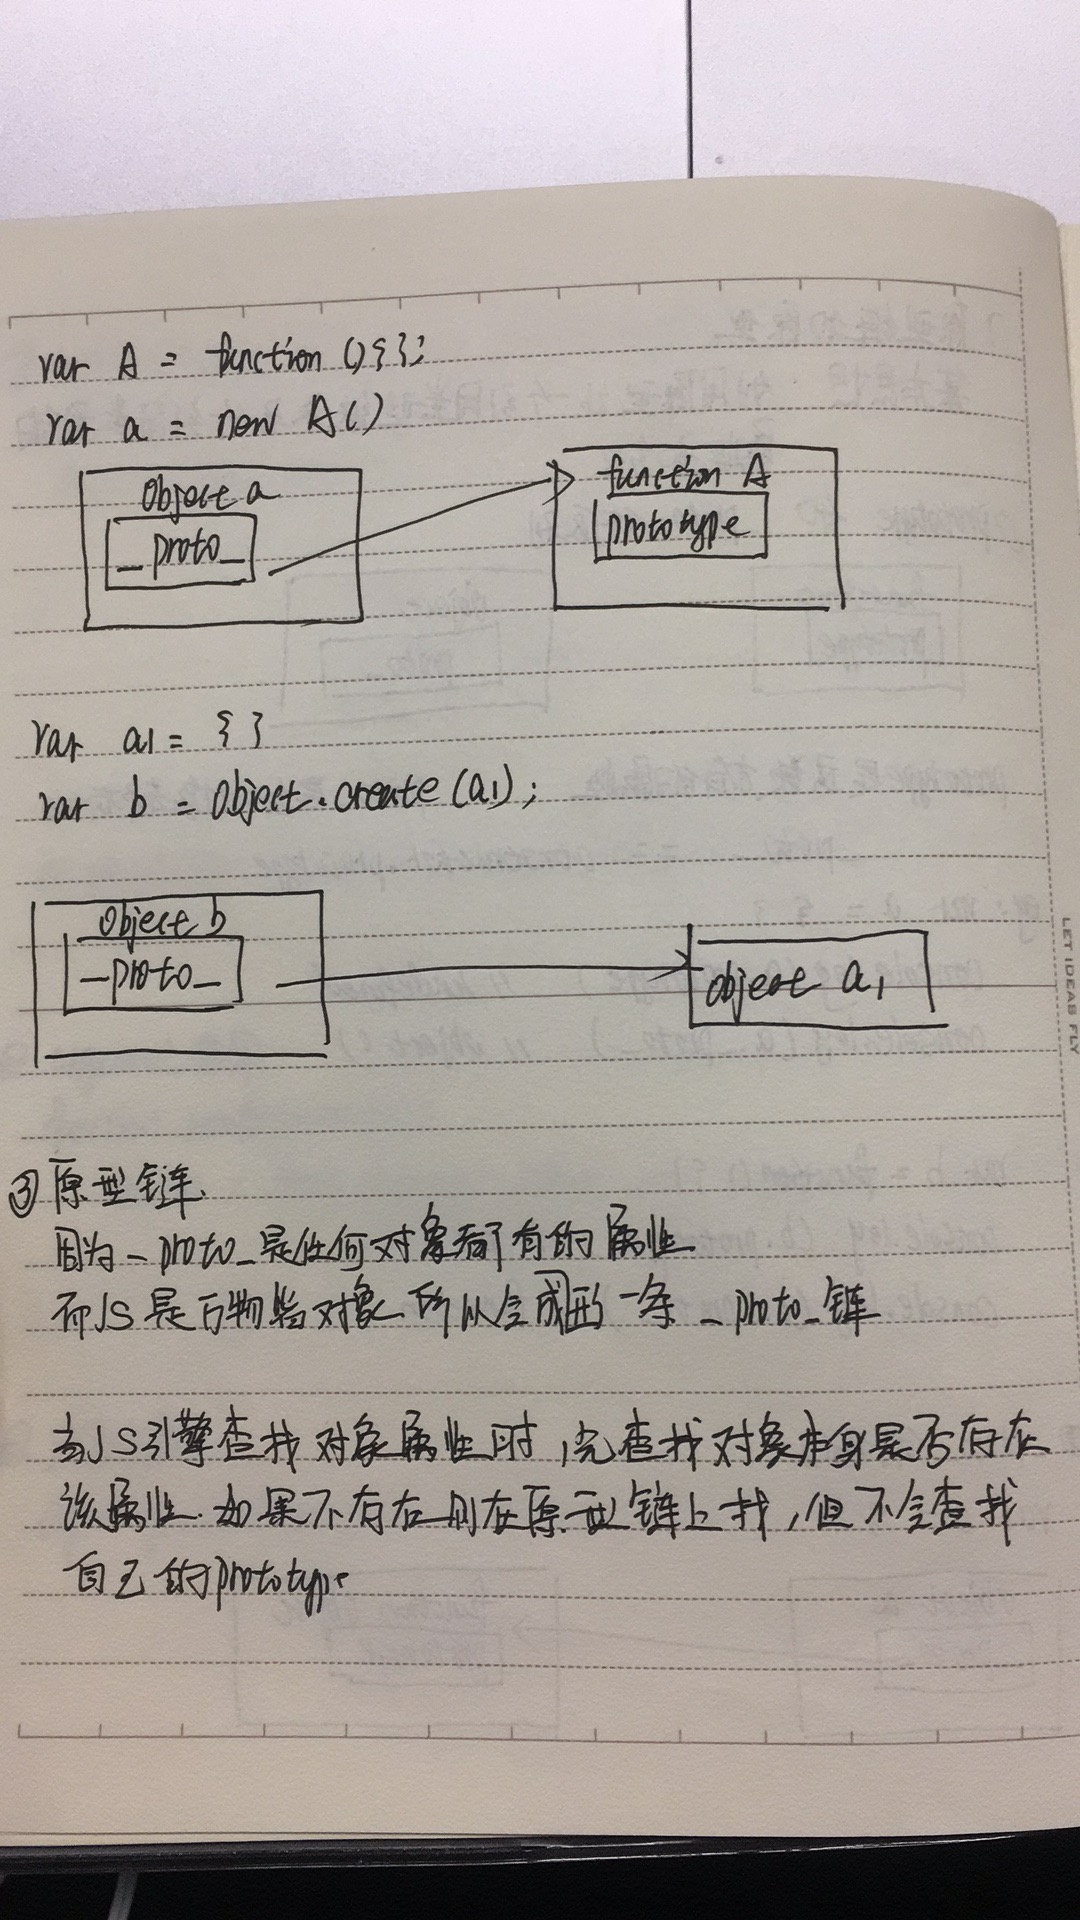 var A = function (){};
var a = new A()
object a
_proto_
function A
prototype
var a1 = { }
var b = object.create(a1);
object b
_proto_
object a1
③原型链
因为_proto_是任何对象都有的属性
而JS是万物皆对象 所以会成形一条 _proto_链
当JS引擎查找对象属性时,先查找对象本身是否存在
该属性.如果不存在则在原型链上找,但不会查找
自己的prototype
LET IDEAS FLY